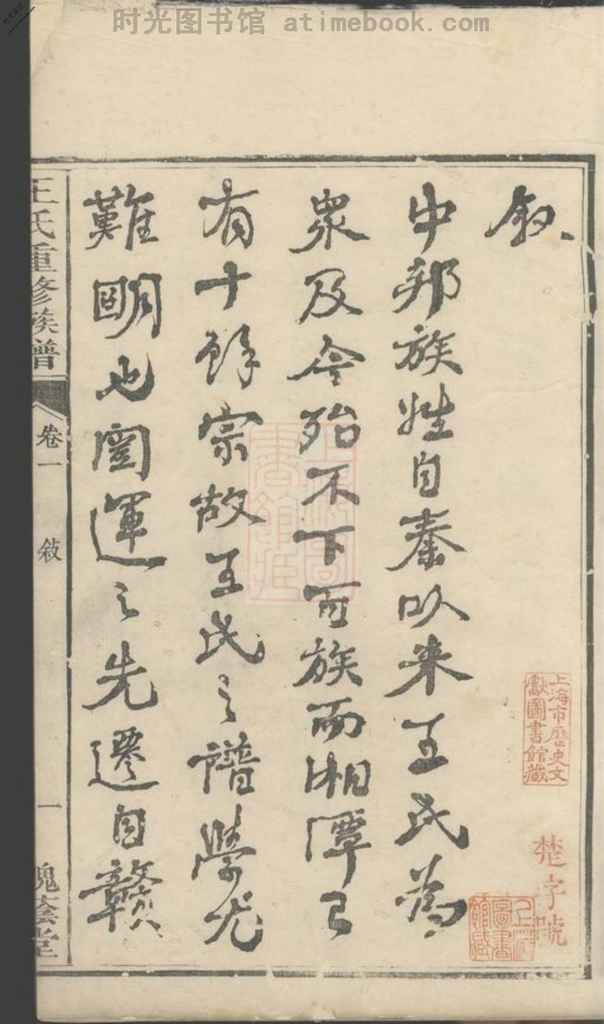 时光图书馆 atimebook.com
叙
中邦族姓自秦以来王氏為
衆及今殆不下百族而湘潭已
有十餘宗故王氏之譜學尤
難明也闓運之先遷自贛
王氏重修族譜
卷一
敘
一
槐蔭堂
上海市歷史文
獻圖書館藏
楚字號